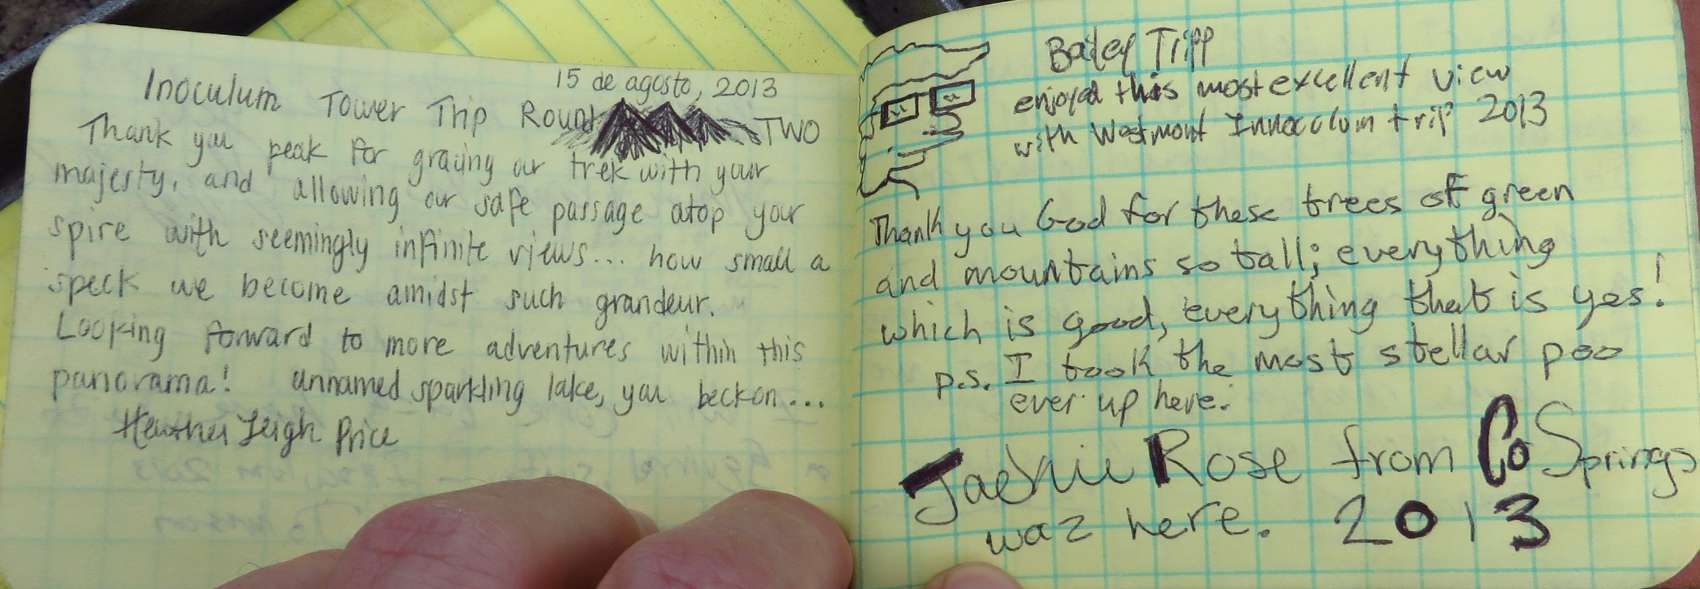 15 de agosto, 2013
Inoculum Tower Trip Round TWO
Thank you peak for gracing our trek with your
majesty, and allowing our safe passage atop your
spire with seemingly infinite views... how small a
speck we become amidst such grandeur.
Looking forward to more adventures within this
panorama! Unnamed sparkling lake, you beckon...
Heather Leigh Price
Bailey Tripp
enjoyed this most excellent view
with Westmont Innoculum trip 2013
Thank you God for these trees of green
and mountains so tall; everything
which is good, everything that is yes!
p.s. I took the most stellar poo
ever up here.
Rose from Co Springs
waz here. 2013